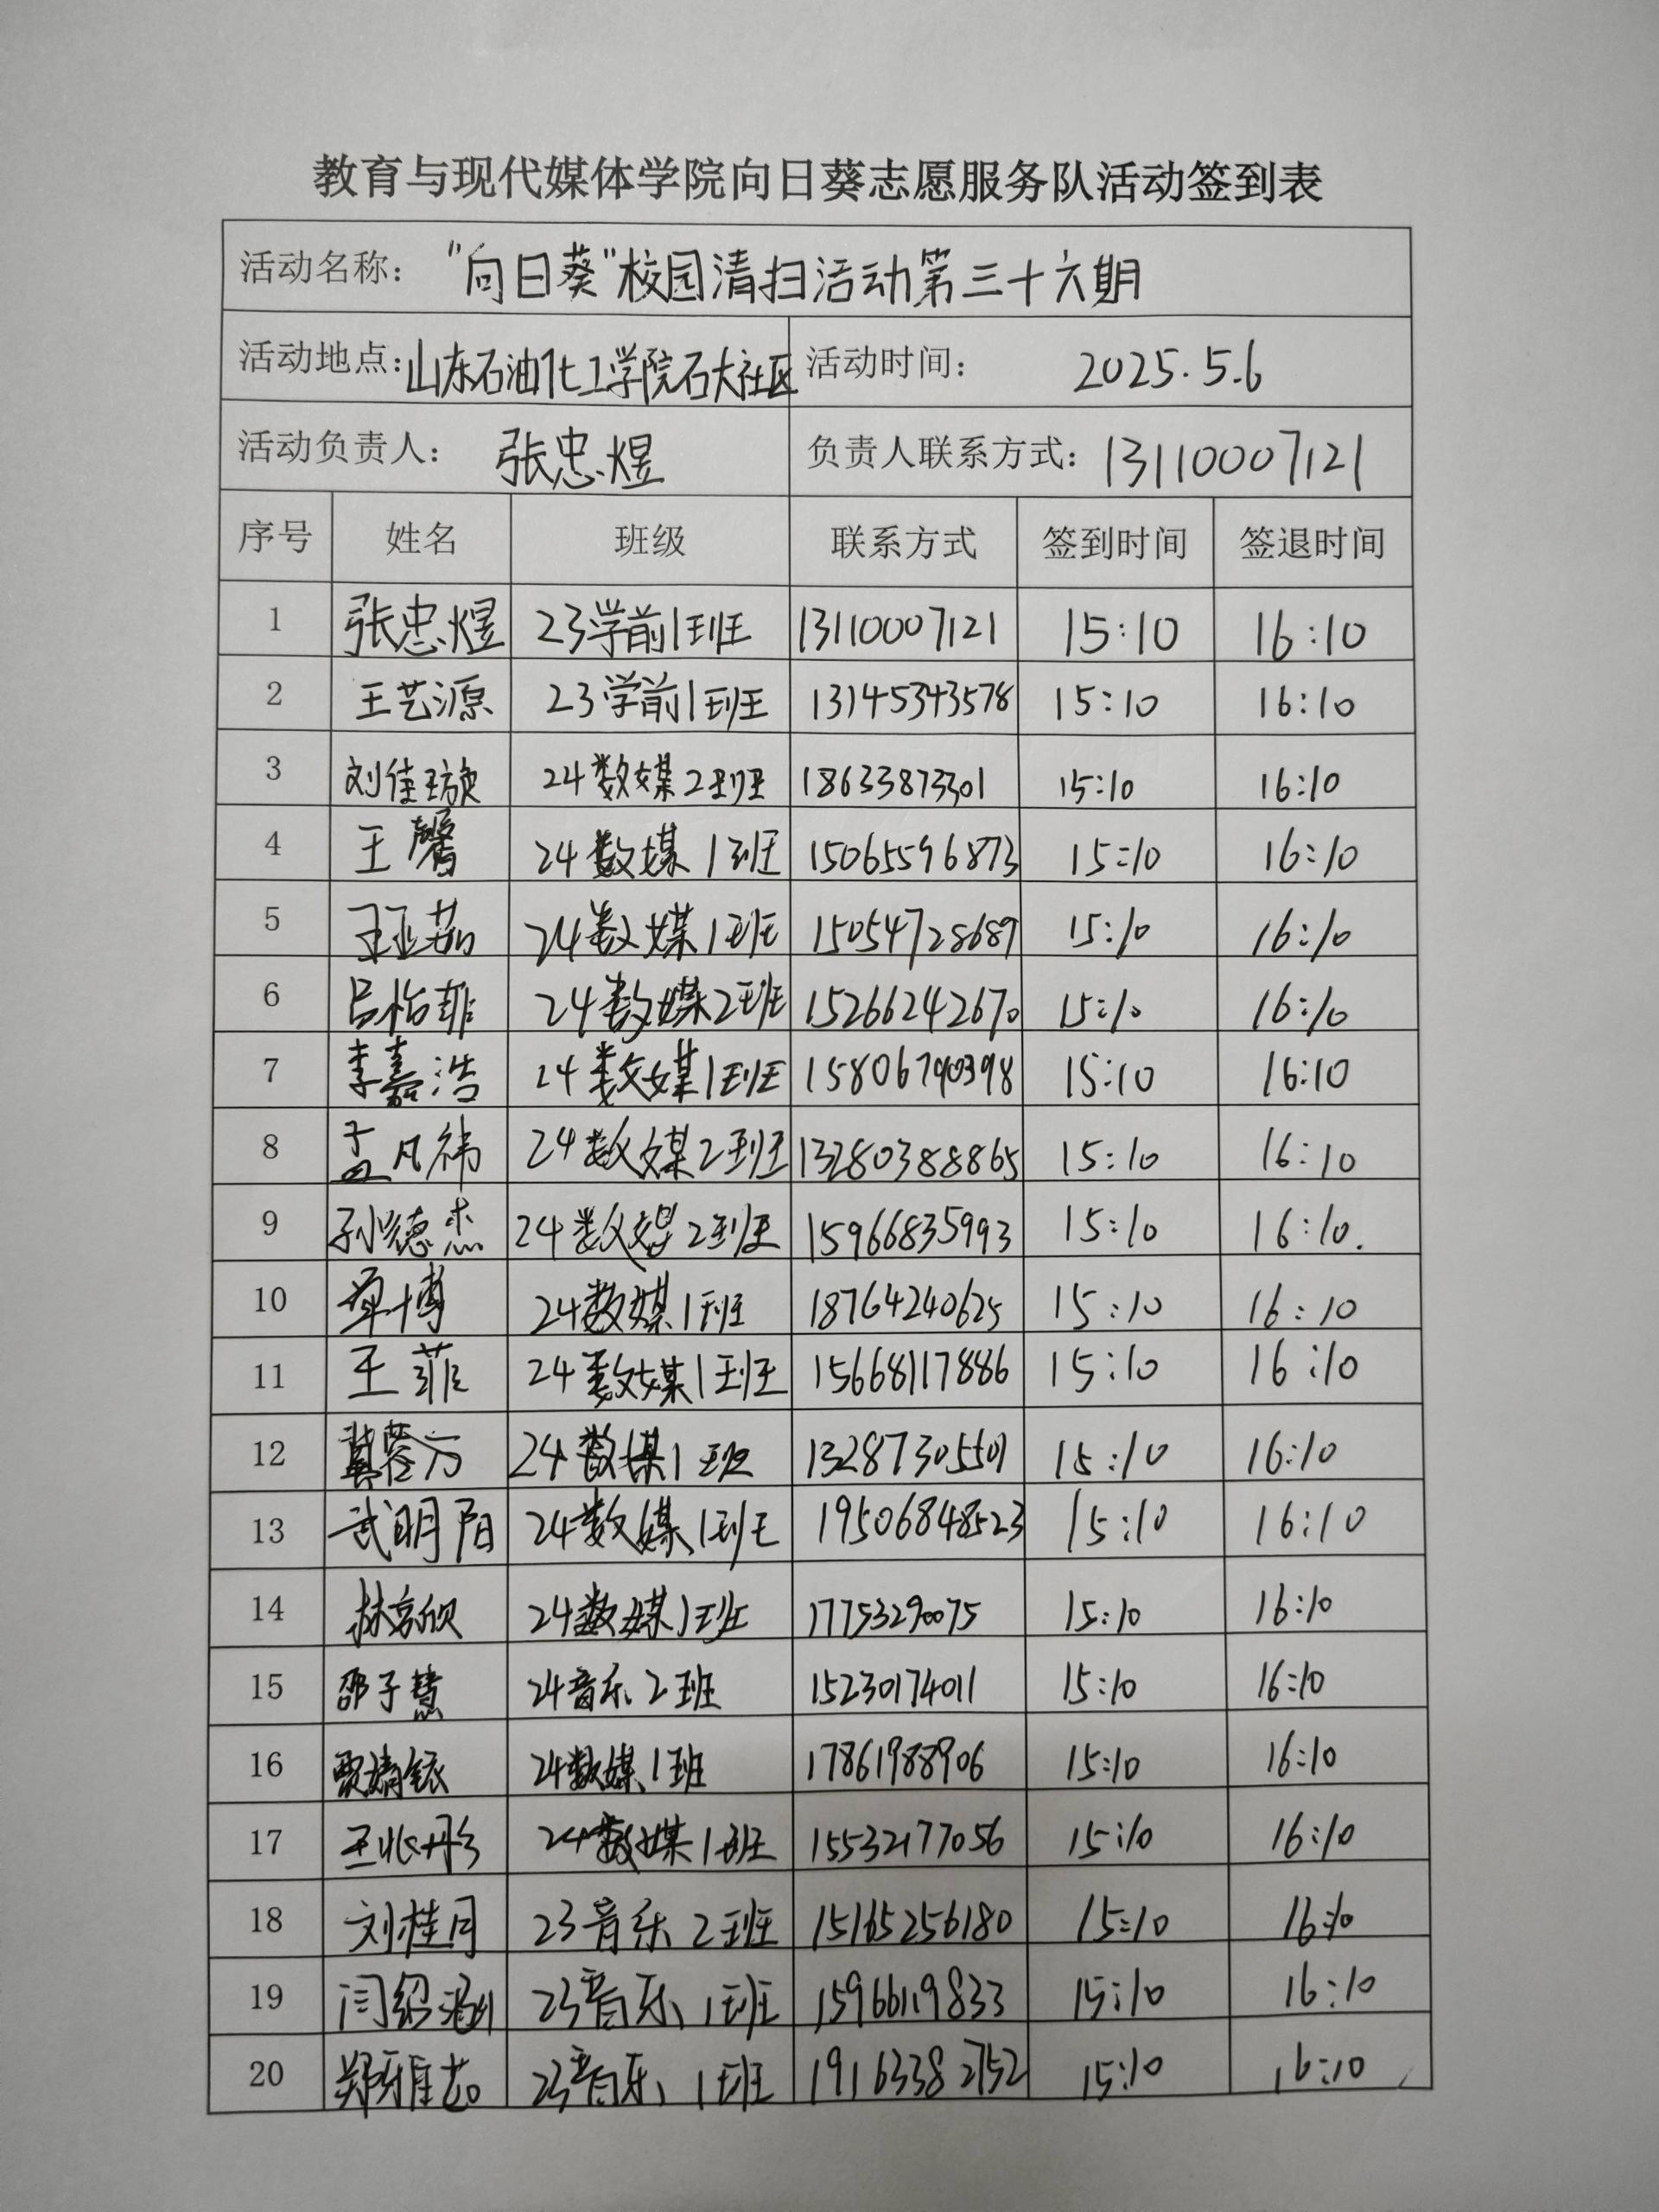 教育与现代媒体学院向日葵志愿服务队活动签到表
活动名称： "向日葵"校园清扫活动第三十六期
活动地点：山东石油化工学院石大社区 活动时间： 2025.5.6
活动负责人： 张忠煜 负责人联系方式：13110007121
序号 姓名 班级 联系方式 签到时间 签退时间
1 张忠煜 23学前1班 13110007121 15:10 16:10
2 王艺源 23学前1班 13145343578 15:10 16:10
3 刘佳璇 24数媒2班 18633873301 15:10 16:10
4 王馨 24数媒1班 15065596873 15:10 16:10
5 王亚茹 24数媒1班 15054728689 15:10 16:10
6 吕怡菲 24数媒2班 15266242670 15:10 16:10
7 李嘉浩 24数媒1班 15806790398 15:10 16:10
8 孟凡祎 24数媒2班 13280388865 15:10 16:10
9 孙德杰 24数媒2班 15966835993 15:10 16:10.
10 单博 24数媒1班 18764240625 15:10 16:10
11 王菲 24数媒1班 15668117886 15:10 16:10
12 24数媒1班 13287305501 15:10 16:10
13 武明阳 24数媒1班 19506848523 15:10 16:10
14 24数媒1班 17753290075 15:10 16:10
15 邵子慧 24音乐2班 15230174011 15:10 16:10
16 24数媒1班 17861988906 15:10 16:10
17 王兆彤 24数媒1班 15532177056 15:10 16:10
18 刘桂月 23音乐2班 15165256180 15:10 16:10
19 闫绍涵 23音乐1班 15966119833 15:10 16:10
20 郑雅芯 23音乐1班 19163382752 15:10 16:10